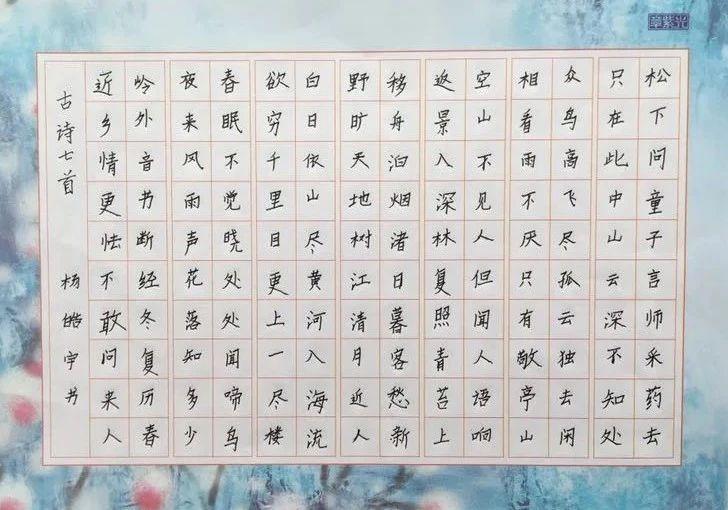 章紫光
松下问童子言师采药去
只在此中山云深不知处
众鸟离飞尽孤云独去闲
相看雨不厌只有敬亭山
空山不见人但闻人语响
返景入深林复照青苔上
移舟泊烟渚日暮客愁新
野旷天地树江清月近人
白日依山尽黄河入海流
欲穷千里目更上一尽楼
春眠不觉晓处处闻啼鸟
夜来风雨声花落知多少
岭外音书断经冬复历春
近乡情更怯不敢问来人
古诗七首 杨皓宇书